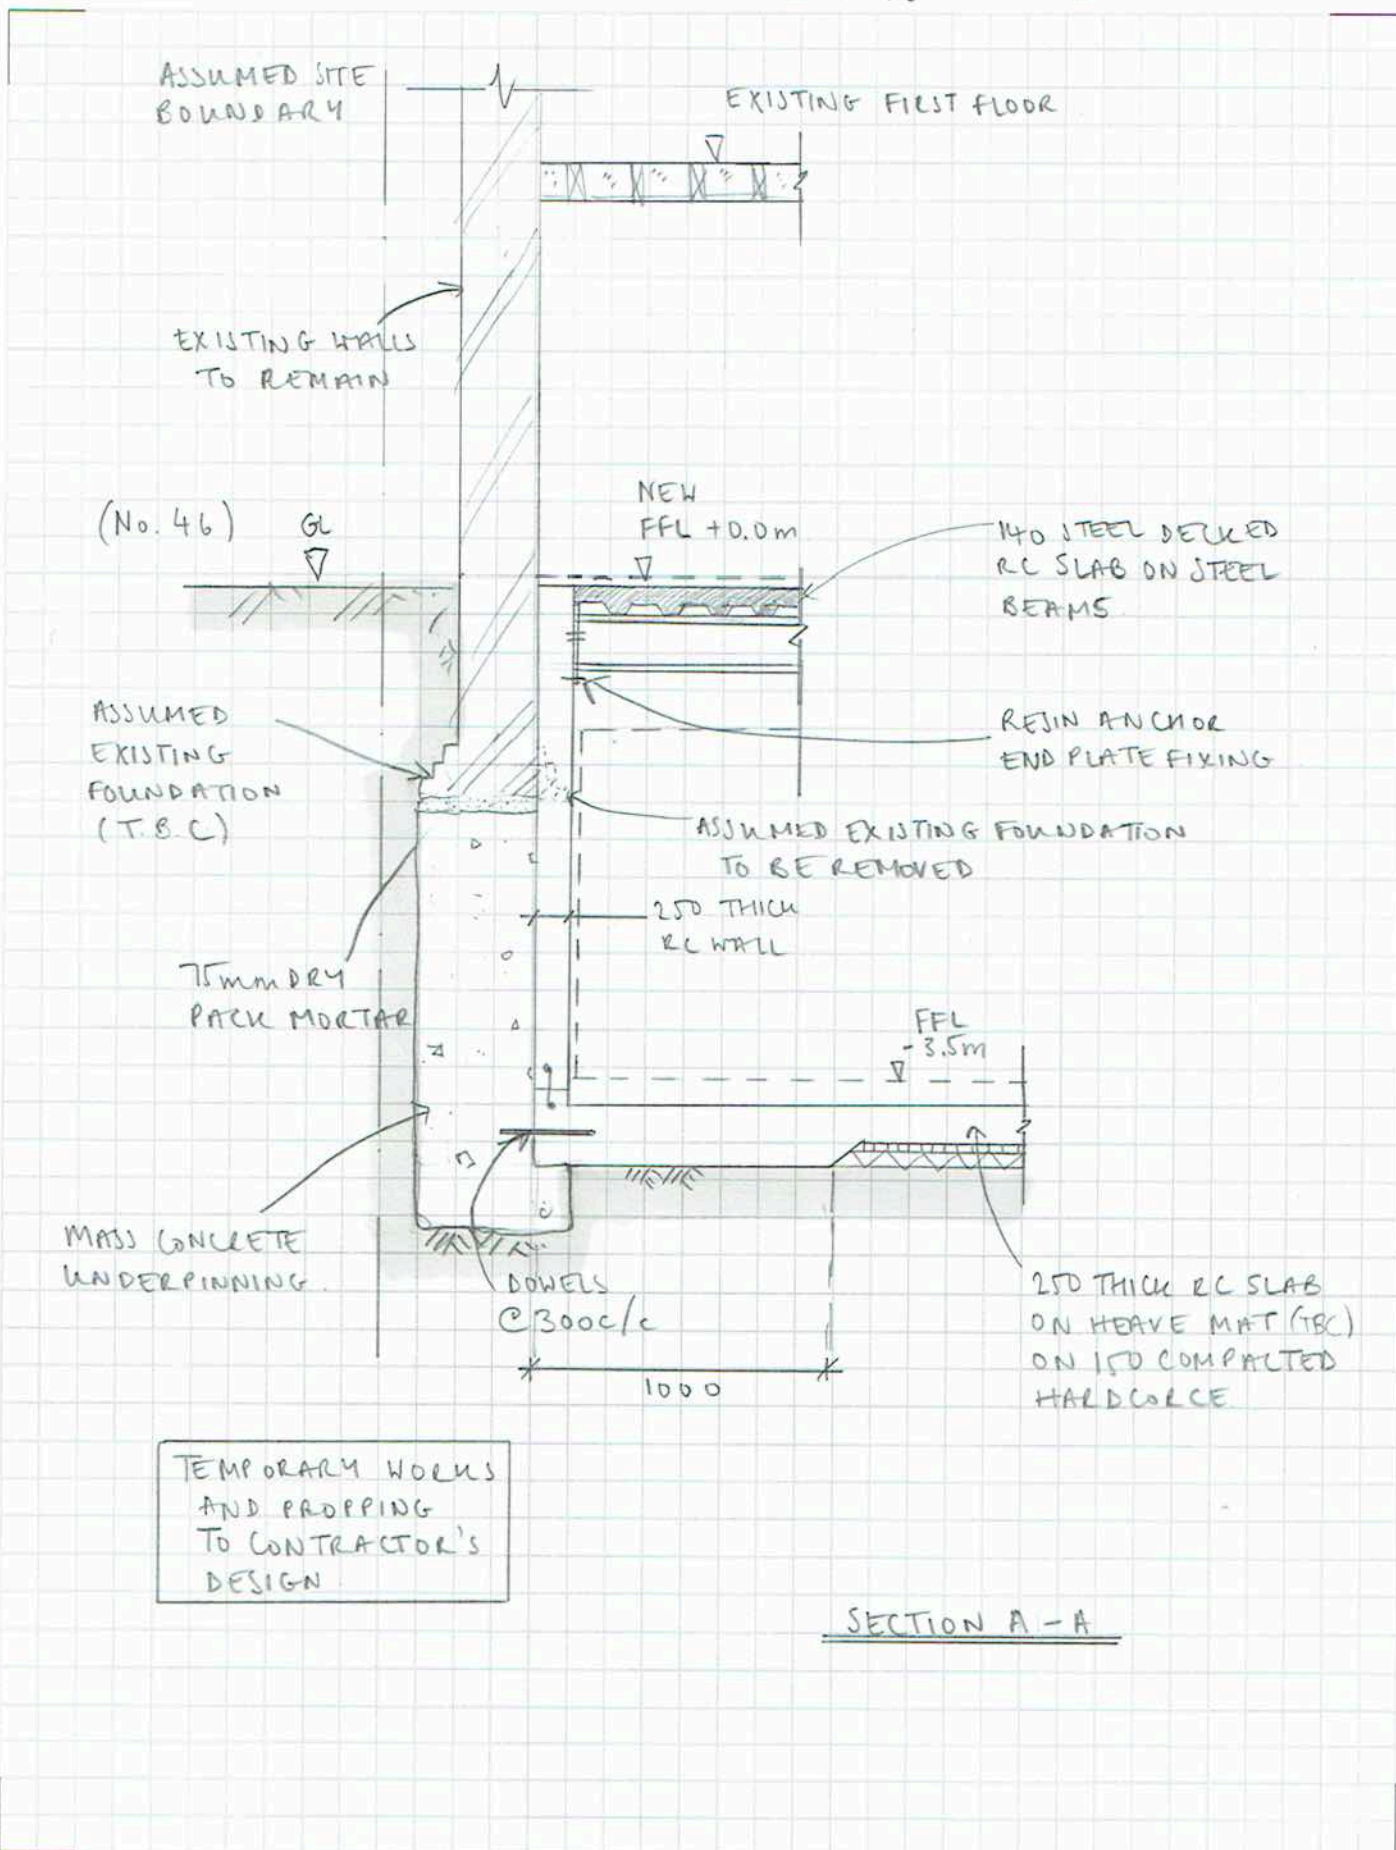 ASSUMED SITE
BOUNDARY
EXISTING FIRST FLOOR
EXISTING WALLS
TO REMAIN
(No. 46)
GL
NEW
FFL +0.0m
140 STEEL DECKED
RC SLAB ON STEEL
BEAMS
ASSUMED
EXISTING
FOUNDATION
(T.B.C)
RESIN ANCHOR
END PLATE FIXING
ASSUMED EXISTING FOUNDATION
TO BE REMOVED
250 THICK
RC WALL
75mm DRY
PACK MORTAR
FFL
-3.5m
MASS CONCRETE
UNDERPINNING
DOWELS
@300c/c
250 THICK RC SLAB
ON HEAVE MAT (TBC)
ON 150 COMPACTED
HARDCORCE
1000
TEMPORARY WORKS
AND PROPPING
TO CONTRACTOR'S
DESIGN
SECTION A-A